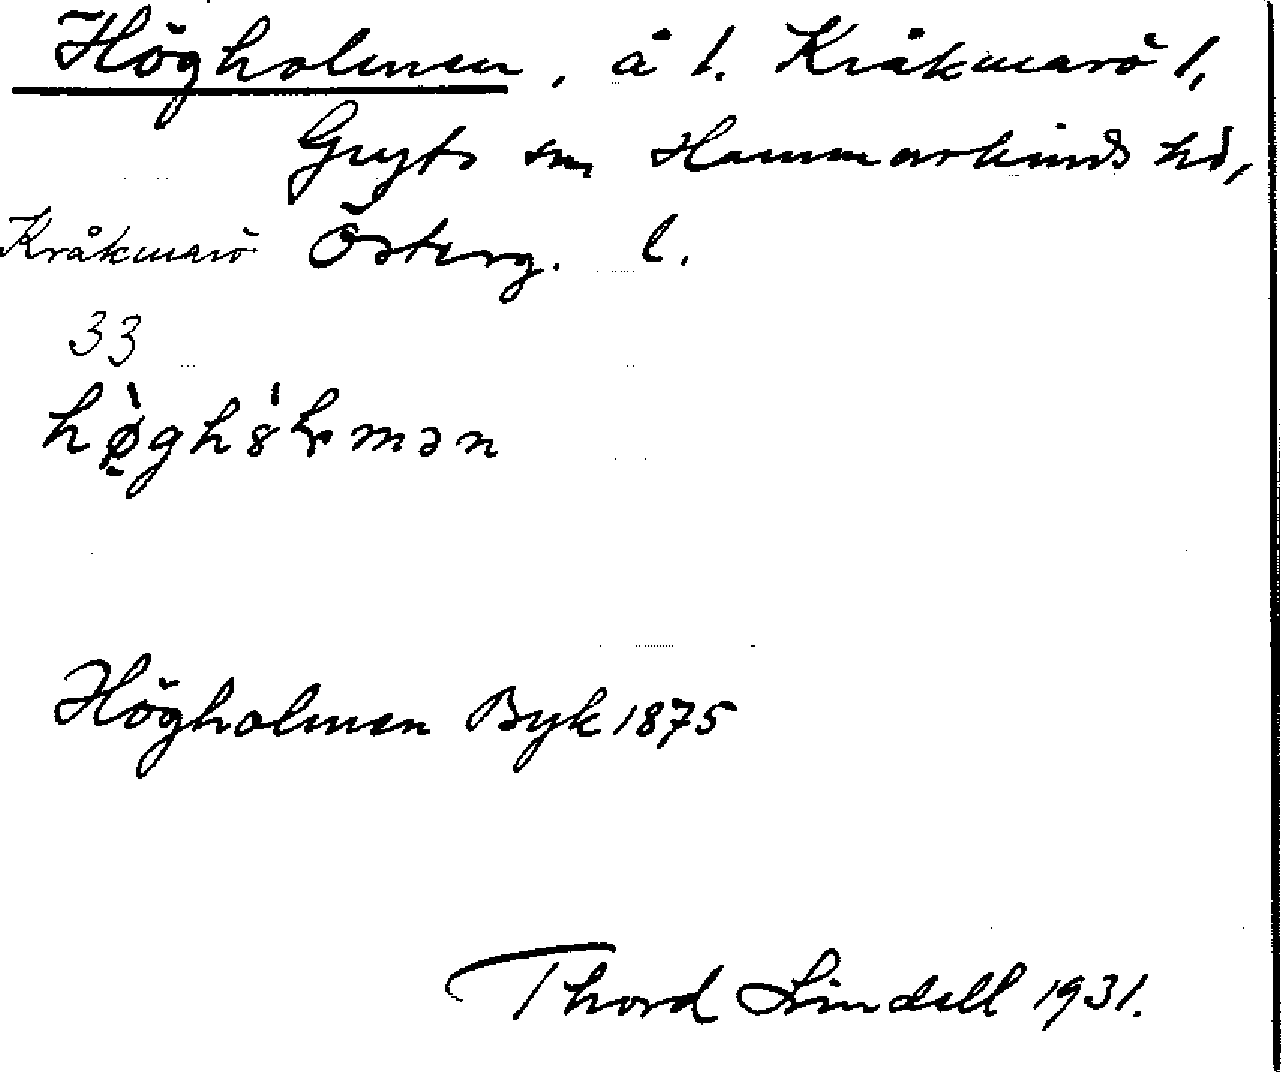 Högholmen, å t. Kråkmarö t,
Gryts sn, Hammarkinds hd,
Kråkmarö Österg. l.
33
Högholmen Byk 1875
Thord Lindell 1931.